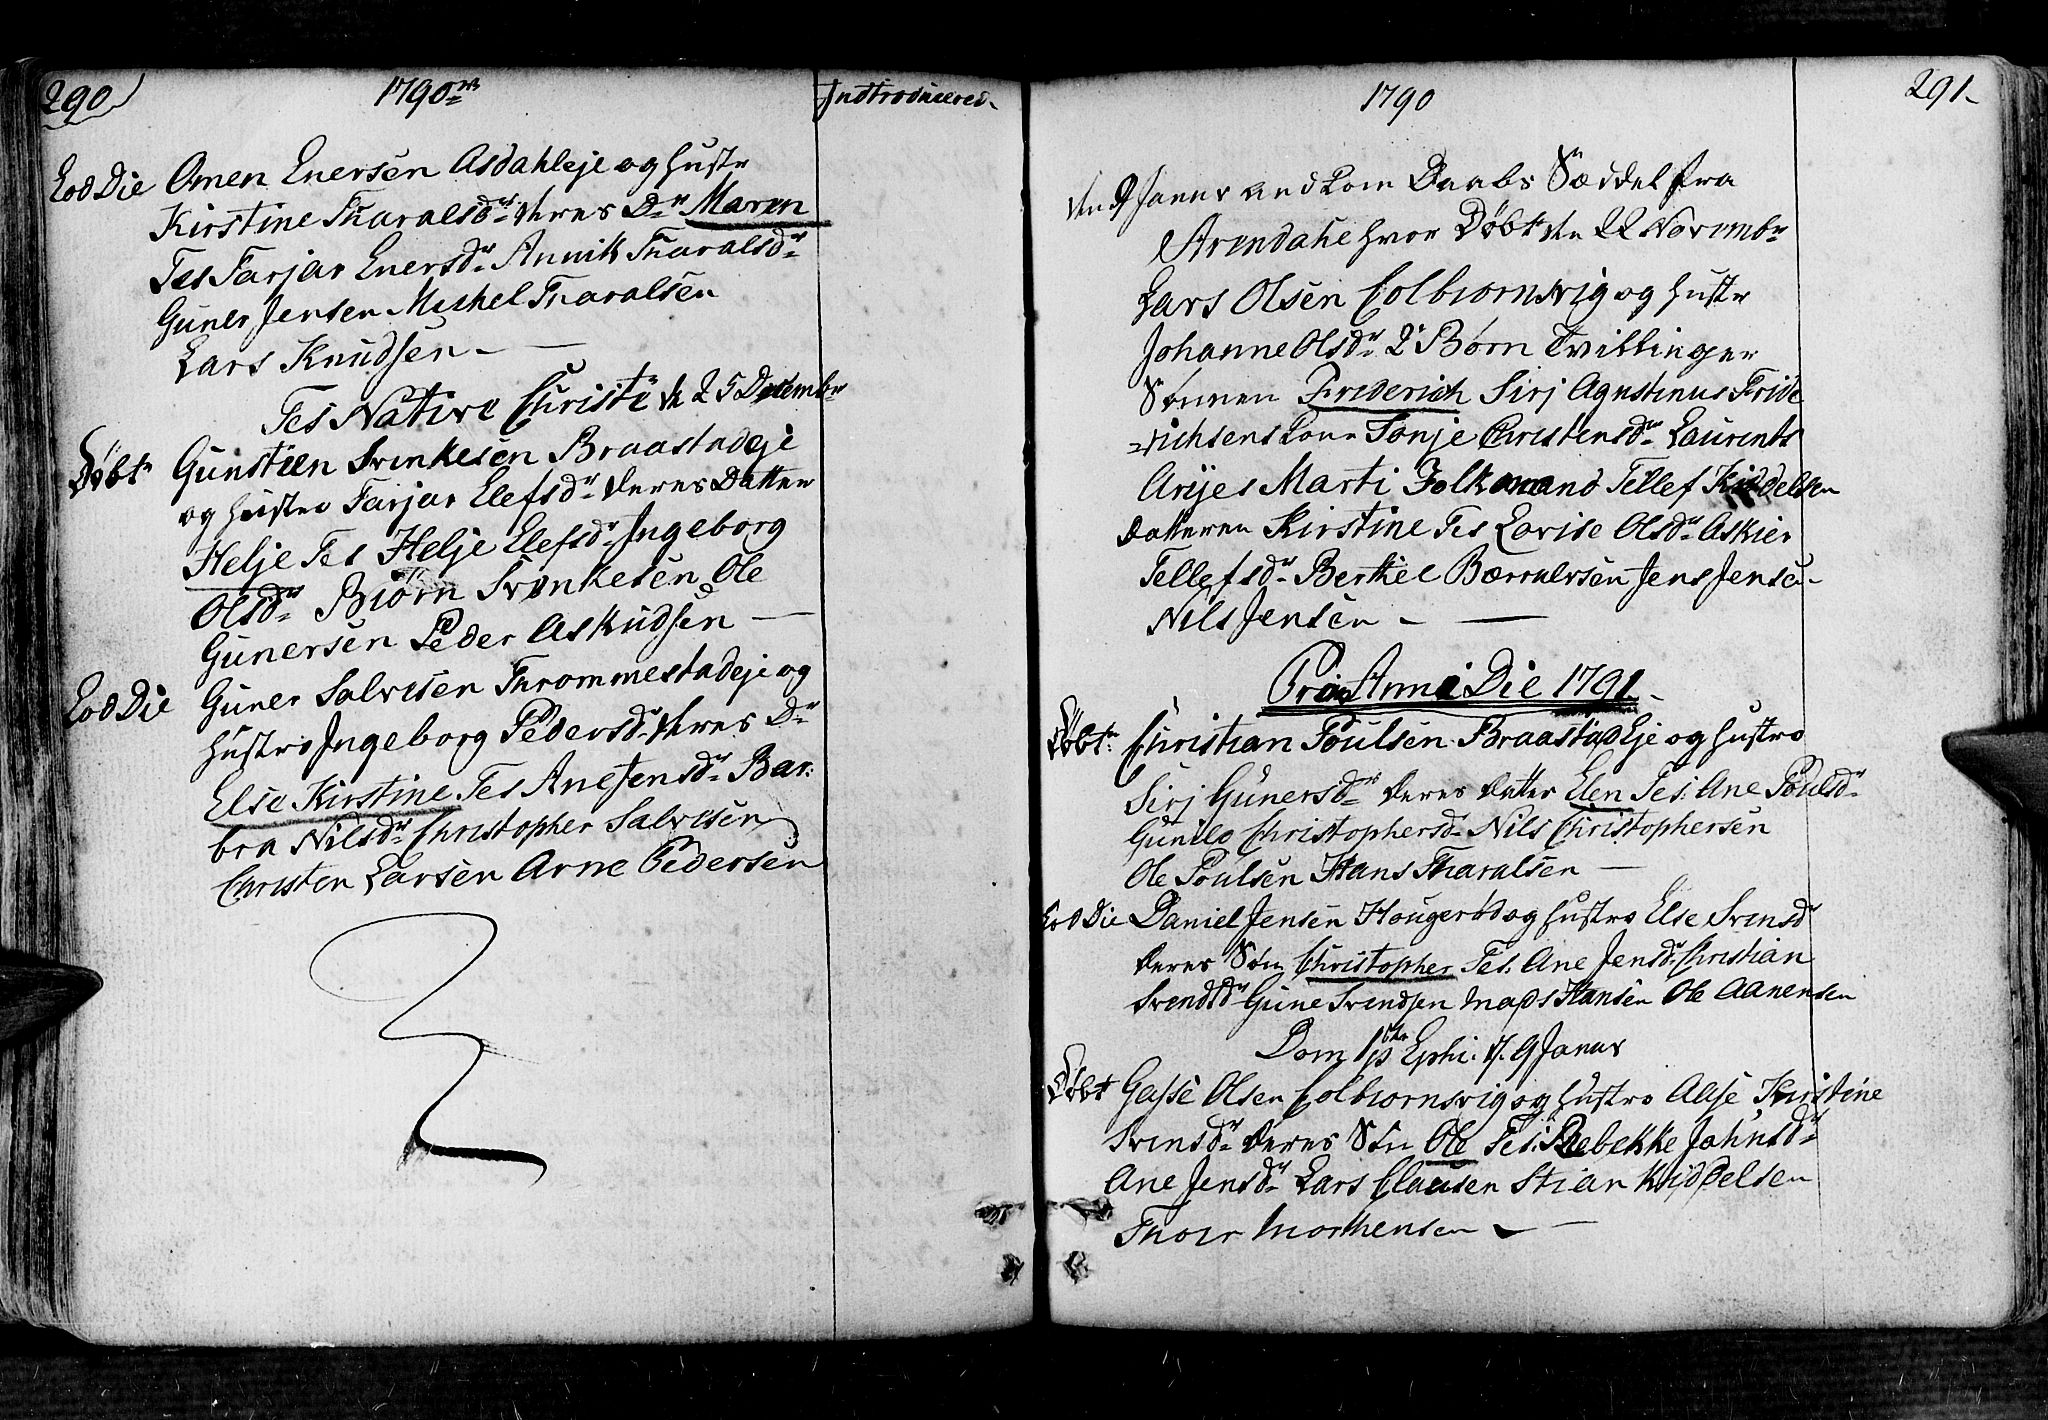 290
1790
Indtroducered.
Eod Die Omen Enersen Asdahleje og Hustr
Kirstine Tharalsdr deres Dr Maren
Tes Tarjar Enersdr Annik Tharalsdr
Guner Jensen Michel Tharalsen
Lars Knudsen
Fes Native Christi d 25 Decembr
Døbt Gunsteen Svenkesen Braastadeje
og Hustro Tarjar Elefsdr deres Datter
Helje Tes Helje Elefsdr Ingeborg
Olsdr Biørn Svenkesen Ole
Gunersen Peder Askudsen
Eod Die Guner Salvesen Thrommestadeje og
Hustro Ingeborg Pedersdr deres Dr
Else Kirstine Tes Ane Jensdr Bar:
bra Nilsdr Christopher Salvesen
Christen Larsen Arne Pedersen
1790
291
den 9 Januar indkom Daabs Sæddel fra
Arendahl hvor Døbt den 22 Novembr
Lars Olsen Colbiornsvig og Hustr
Johanne Olsdr 2 Børn Tvillinger
Sønnen Friderich Sirj Agustinus Fride
richsens Kone Tonje Christensdr Laurents
Arijes Marti Folkmand Tellef Kiddelsen
Datteren Kirstine Tes Lovise Olsdr Askier
Tellefsdr Berthel Bærrulvsen Jens Jensen
Nils Jensen
Prim Anni Die 1791
Døbt: Christian Poulsen Braastad Eje og Hustro
Sirj Gunersdr deres Datter Elen Tes: Ane Poulsdr
Gunild Christophersdr Nils Christophersen
Ole Poulsen Hans Tharalsen
Eod Die Daniel Jensen Hougerød og Hustro Else Svensdr
deres Søn Christopher Tes: Ane Jensdr Christian
Svendsdr Gune Svendsen Mads Hansen Ole Aanensen
Dom 1 p Ephi: d. 9 Januar
Døbt Gasse Olsen Colbiornsvig og Hustro Aase Kirstine
Svensdr deres Søn Ole Tes: Rebekke Johnsdr
Ane Jensdr Lars Clausen Stian Kiddelsen
Thoer Morthensen